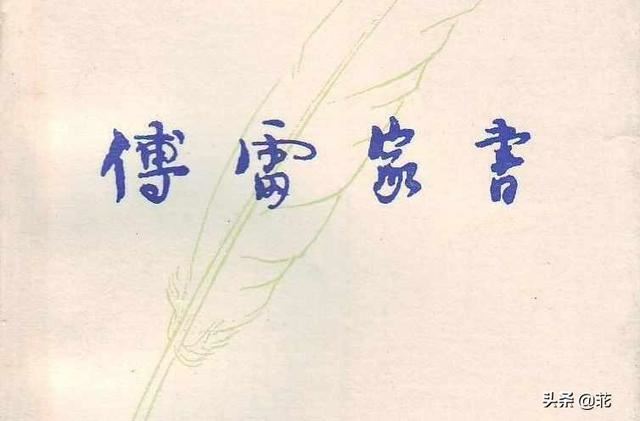 傅雷家書
头条 @花